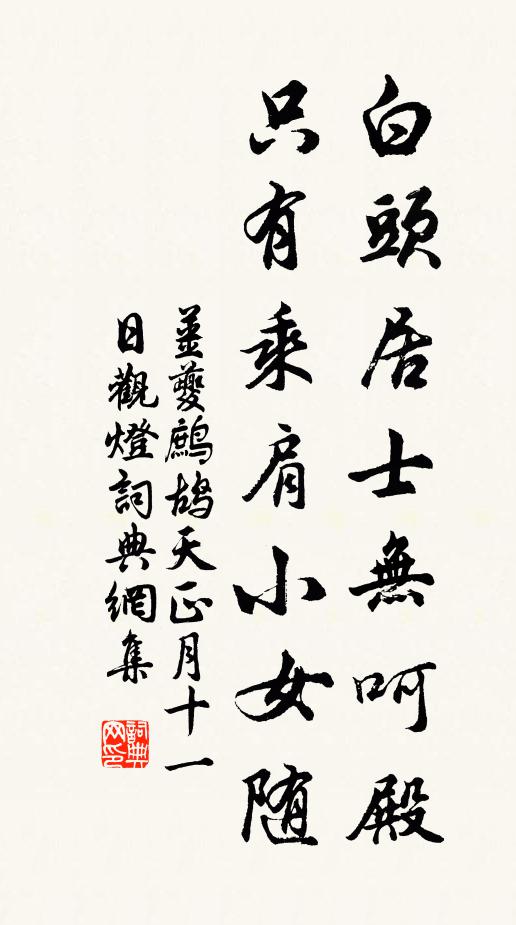 白頭居士無呵殿
只有乘肩小女随
姜夔鷓鴣天正月十一
日觀燈詞典網集
詞典網印